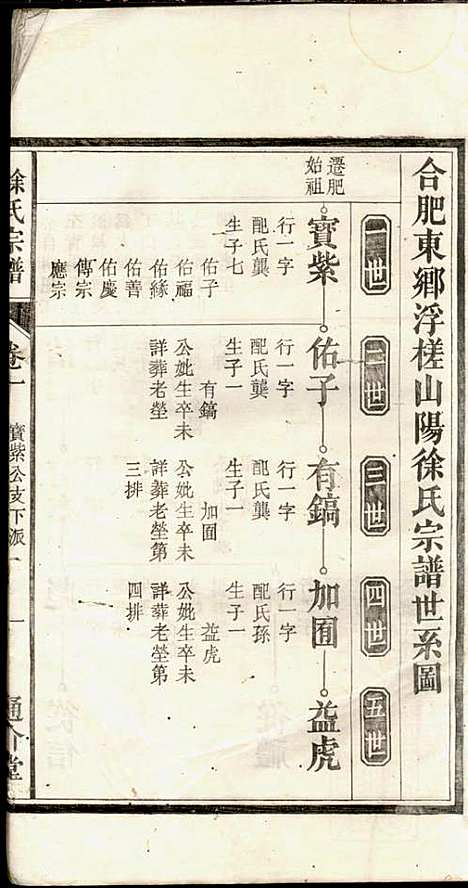 合肥東鄉浮槎山陽徐氏宗譜世系圖
一世
二世
三世
四世
五世
遷肥始祖
寶紫
佑子
有鎬
加囿
益虎
行一字
配氏龔
生子七
佑子
佑福
佑緣
佑善
佑慶
傳宗
應宗
行一字
配氏龔
生子一
有鎬
公妣生卒未
詳葬老塋
行一字
配氏龔
生子一
加囿
公妣生卒未
詳葬老塋第
三排
行一字
配氏孫
生子一
益虎
公妣生卒未
詳葬老塋第
四排
徐氏宗譜
卷一
寶紫公支下派一
一
通介堂